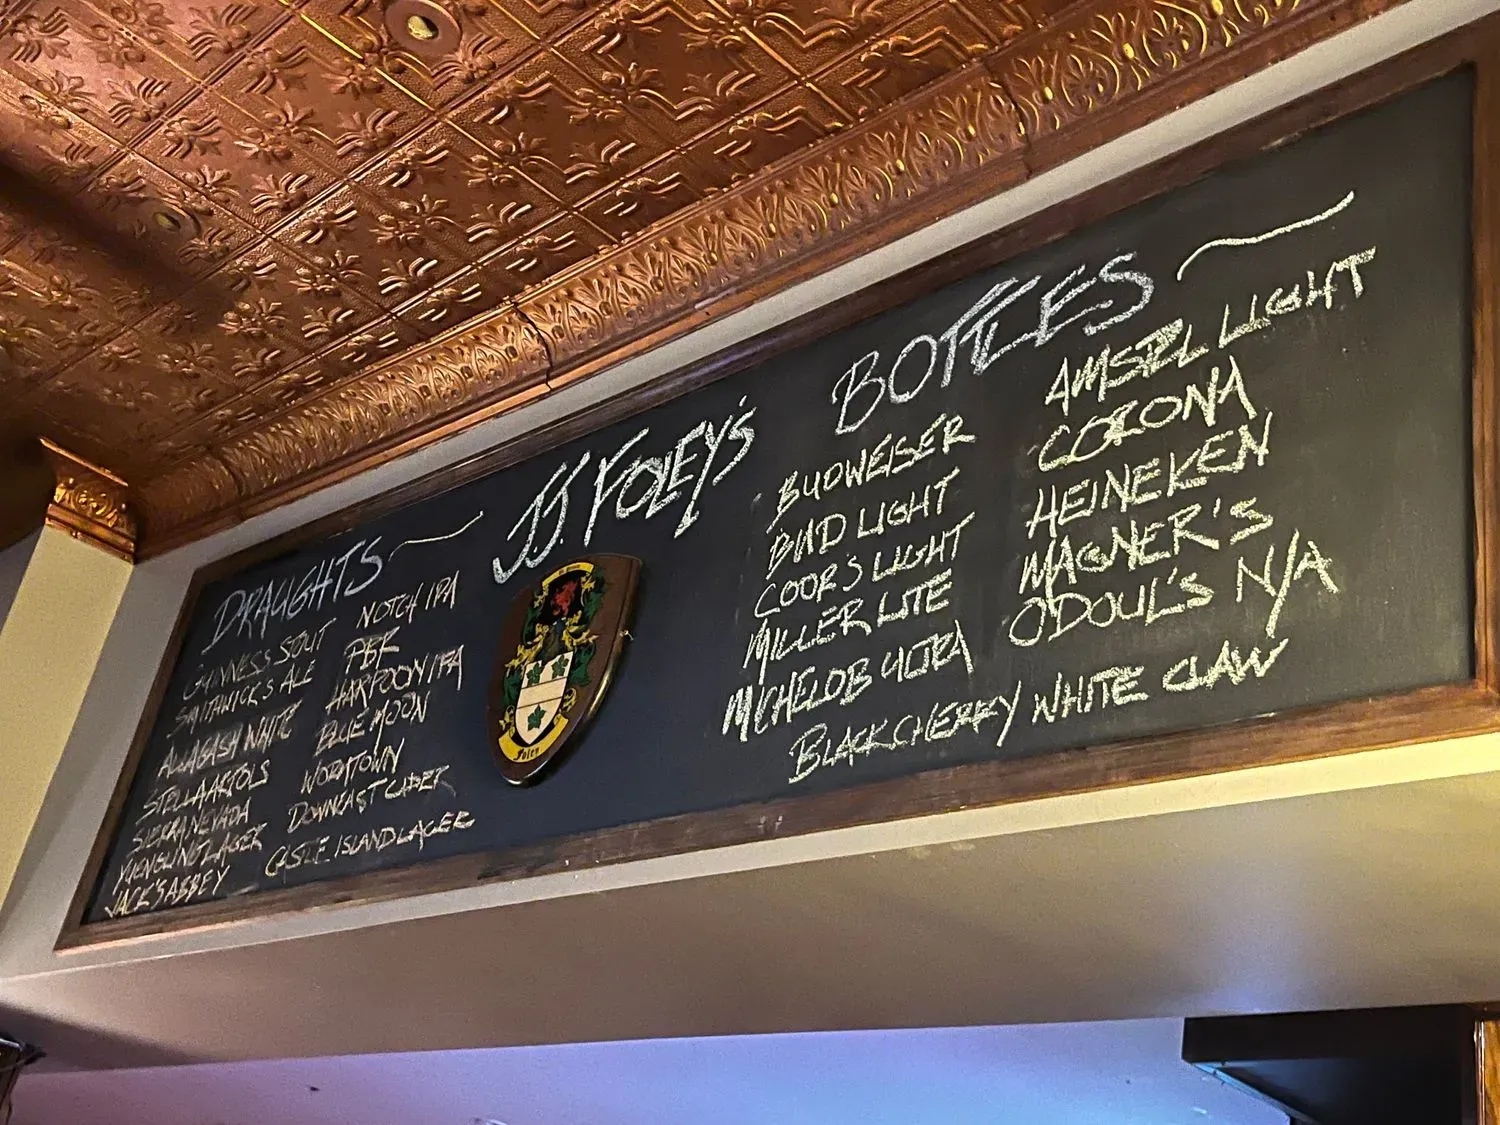 DRAUGHTS
GUINNESS STOUT
SMITHWICK'S ALE
ALLAGASH WHITE
STELLA ARTOIS
SIERRA NEVADA
YUENGLING LAGER
JACK'S ABBEY
NOTCH IPA
PBR
HARPOON IPA
BLUE MOON
WORMTOWN
DOWNEAST CIDER
CASTLE ISLAND LAGER
JJ. FOLEY'S
Foley
BOTTLES
BUDWEISER
BUD LIGHT
COORS LIGHT
MILLER LITE
MICHELOB ULTRA
AMSTEL LIGHT
CORONA
HEINEKEN
MAGNER'S
O'DOUL'S N/A
BLACK CHERRY WHITE CLAW